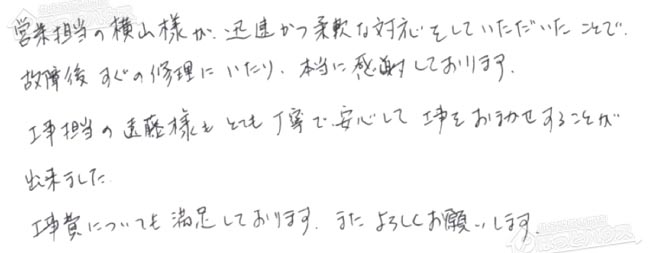 営業担当の横山様が、迅速かつ柔軟な対応をしていただいたことで、
故障後すぐの修理にいたり、本当に感謝しております。
工事担当の遠藤様もとても丁寧で、安心して工事をおまかせすることが
出来ました。
工事費についても満足しております。またよろしくお願いします。